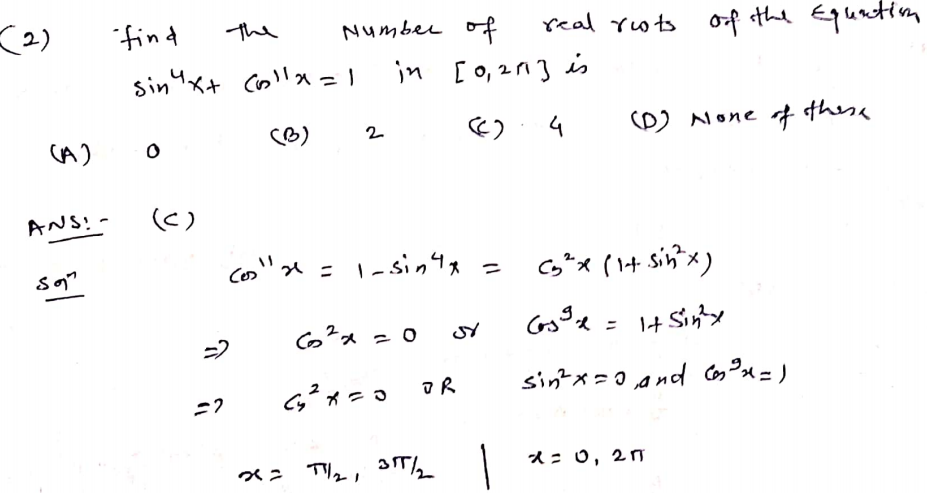 (2) find the Number of real roots of the Equation
sin⁴x + cos¹¹x = 1 in [0, 2π] is
(A) 0 (B) 2 (C) 4 (D) None of these
ANS:- (C)
Solⁿ cos¹¹x = 1 - sin⁴x = cos²x (1 + sin²x)
⇒ cos²x = 0 or cos⁹x = 1 + sin²x
⇒ cos²x = 0 OR sin²x = 0 and cos⁹x = 1
x = π/2, 3π/2 | x = 0, 2π